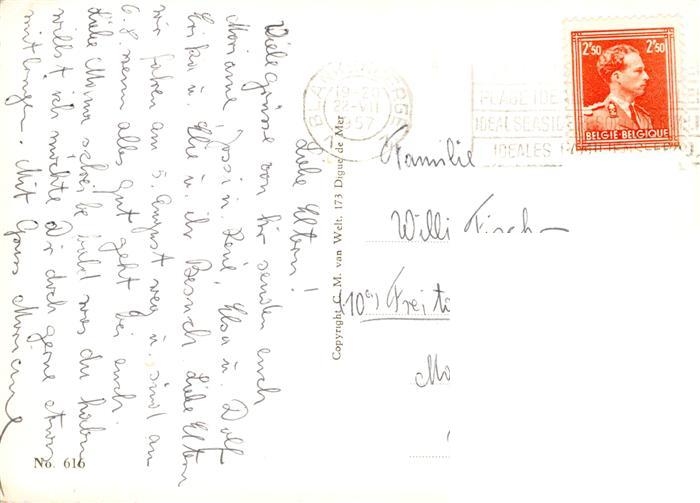 Liebe Eltern!
Viele Grüsse von hir senden euch
Marianne, Jossi u. René, Elsa u. Dolf
Erika u. Elie u. ihr Besuch. Liebe Eltern
wir fahren am 5. August weg u. sind am
6.8. wenn alles gut geht bei euch.
Liebe Mama schreibe bald was du haben
willst ich möchte Dir doch gerne etwas
mitbringen. Mit Gruss Marianne
No. 616
Copyright C. M. van Welt. 173 Digue de Mer
19-20
22-VII
1957
PLAGE IDE
IDEAL SEASIDE
IDEALES
2F50 2F50
BELGIE-BELGIQUE
Familie
Willi Fisch
(10a) Freita